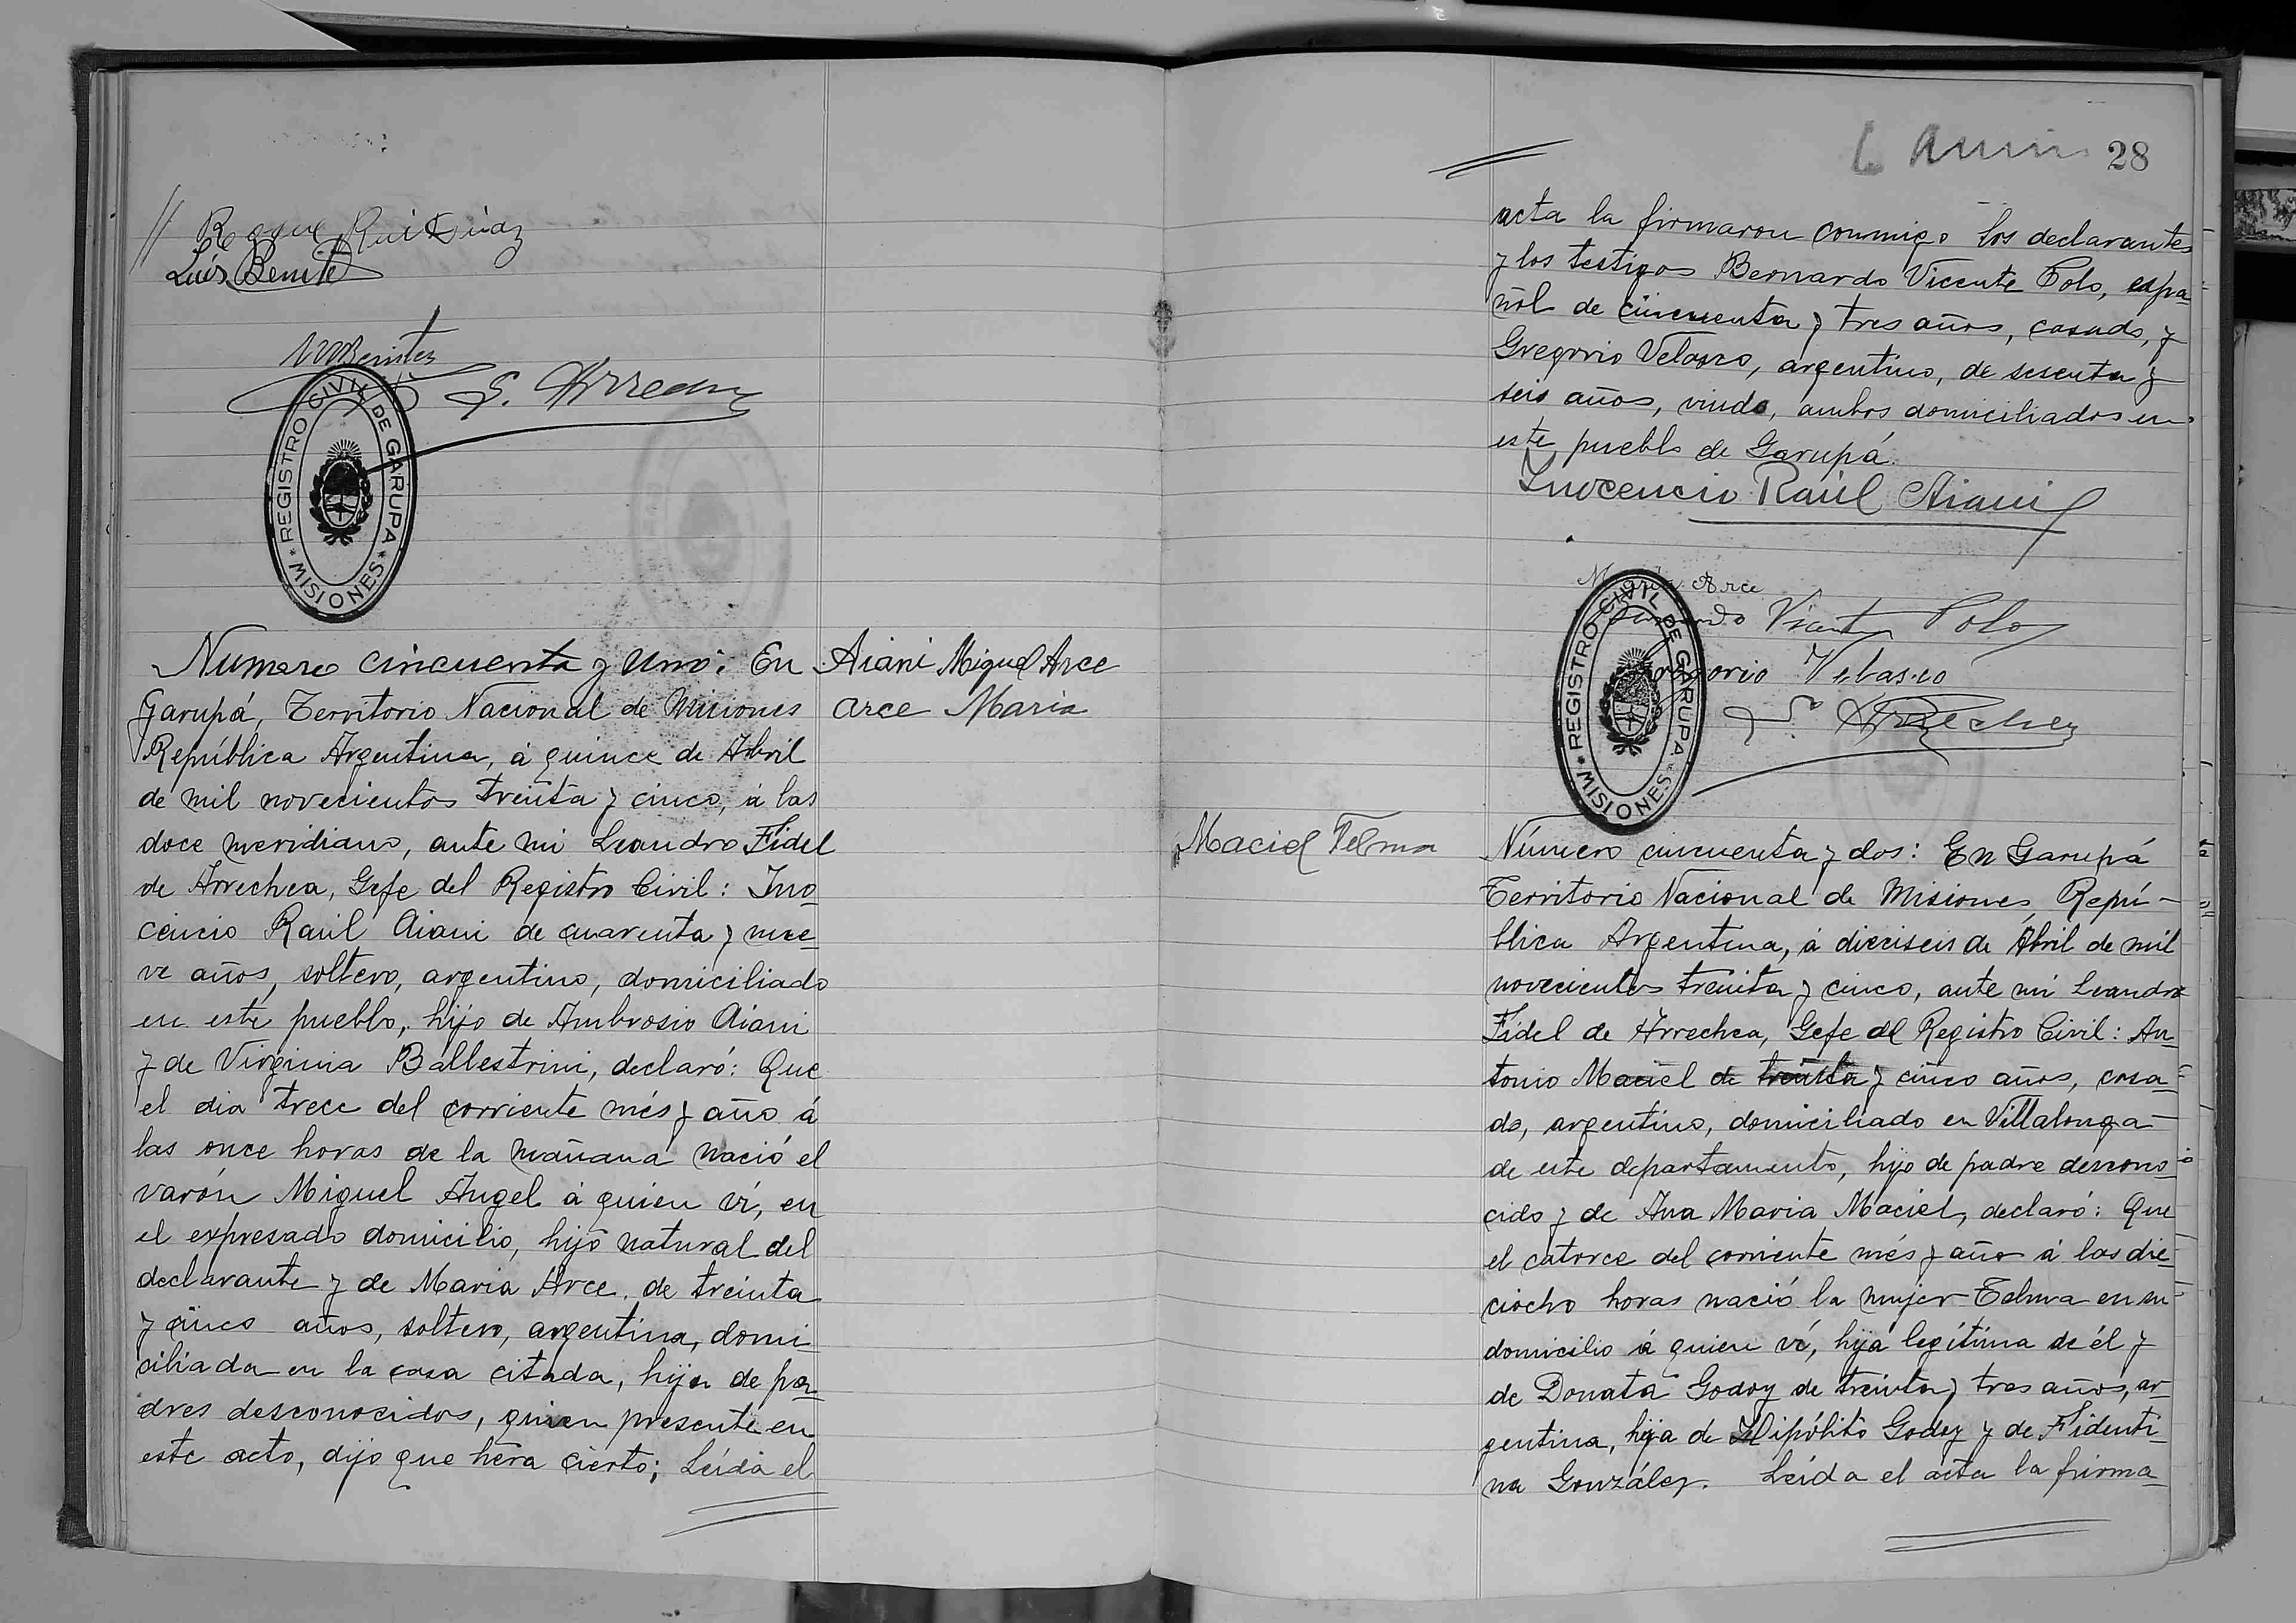 // Roque Ruiz Diaz
Luis Benite
MBenitez
S. Arrechea
REGISTRO CIVIL DE GARUPA
* MISIONES *
Numero cincuenta y uno: En
Garupá, Territorio Nacional de Misiones
República Argentina, á quince de Abril
de mil novecientos treinta y cinco, á las
doce meridiano, ante mi Leandro Fidel
de Arrechea, Gefe del Registro Civil: Ino
cencio Raúl Aiani de cuarenta y nue-
ve años, soltero, argentino, domiciliado
en este pueblo, hijo de Ambrosio Aiani
y de Virginia Ballestrini, declaró: Que
el dia trece del corriente més y año á
las once horas de la mañana nació el
varón Miguel Angel á quien ví, en
el expresado domicilio, hijo natural del
declarante y de Maria Arce, de treinta
y cinco años, soltero, argentina, domi
ciliada en la casa citada, hija de pa-
dres desconocidos, quien presente en
este acto, dijo que hera cierto; Leida el
Aiani Miguel Arce
Arce Maria
28
acta la firmaron conmigo los declarantes
y los testigos Bernardo Vicente Polo, espa-
ñol de cincuenta y tres años, casado, y
Gregorio Velasco, argentino, de sesenta y
seis años, viudo, ambos domiciliados en
este pueblo de Garupá.
Inocencio Raúl Aiani
Maria Arce
Bernardo Vicente Polo
Gregorio Velasco
Arrechea
REGISTRO CIVIL DE GARUPA
* MISIONES *
Maciel Telma
Número cincuenta y dos: En Garupá
Territorio Nacional de Misiones, Repú-
blica Argentina, á dieciseis de Abril de mil
novecientos treinta y cinco, ante mi Leandro
Fidel de Arrechea, Gefe del Registro Civil: An-
tonio Maciel de treinta y cinco años, casa-
do, argentino, domiciliado en Villalonga
de este departamento, hijo de padre descono-
cido y de Ana Maria Maciel, declaró: Que
el catorce del corriente més y año á las die
ciocho horas nació la mujer Telma en su
domicilio á quien ví, hija legítima de él y
de Donata Godoy de treinta y tres años, ar
gentina, hija de Hipólito Godoy y de Fidenti-
na González. Leida el acta la firma-